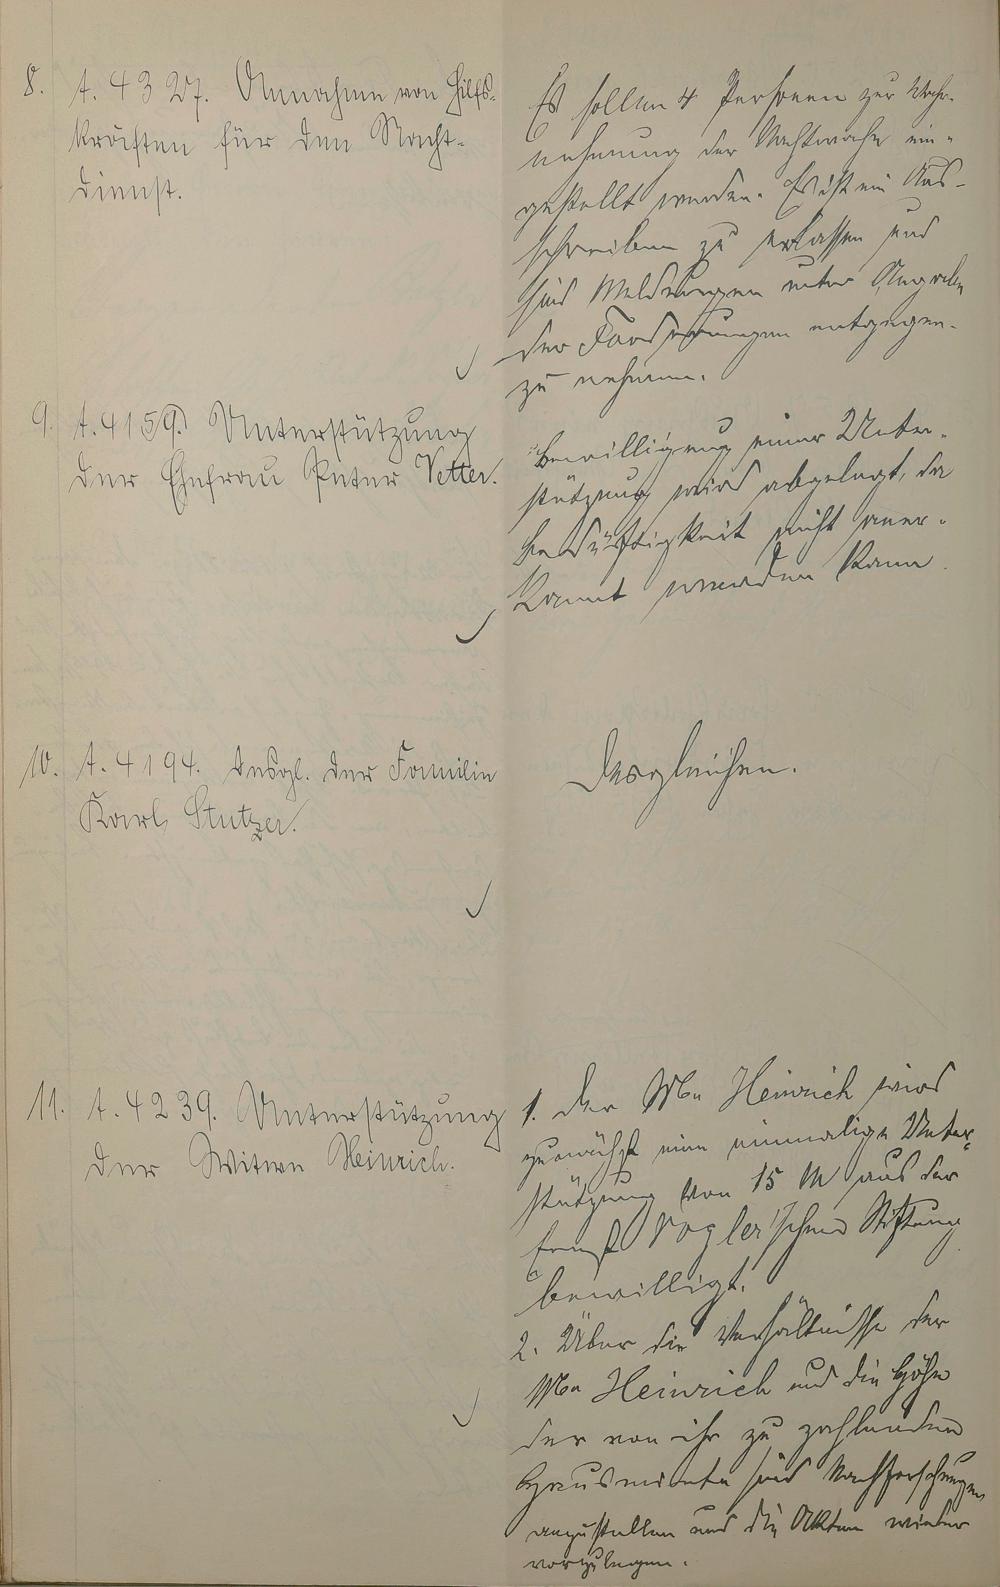 8. A. 4327. Annahme von Hilfs-
kräften für den Nacht-
dienst.
Es sollen 4 Personen zur Wahr-
nehmung der Nachtwache ein-
gestellt werden. Es ist ein Aus-
schreiben zu erlassen und
sind Meldungen unter Angabe
der Forderungen entgegen-
zu nehmen.
9. A. 4159. Unterstützung
der Ehefrau Peter Vetter.
Bewilligung einer Unter-
stützung wird abgelegt, da
Bedürftigkeit nicht aner-
kannt werden kann.
10. A. 4194. Desgl. der Familie
Karl Stutzer.
Desgleichen.
11. A. 4239. Unterstützung
der Witwe Heinrich.
1. Der Wwe Heinrich wird
zunächst eine einmalige Unter-
stützung von 15 M aus der
Ernst Vogler'schen Stiftung
bewilligt.
2. Über die Verhältnisse der
Wwe Heinrich und die Höhe
der von ihr zu zahlenden
Hausmiete sind Nachforschungen
anzustellen und die Akten wieder
vorzulegen.